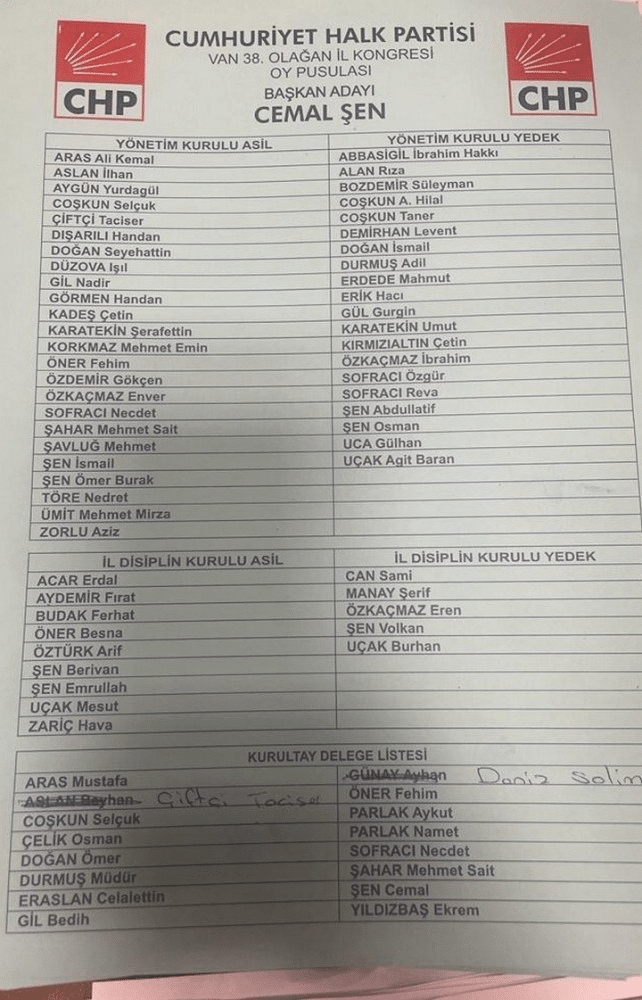 CUMHURİYET HALK PARTİSİ
VAN 38. OLAĞAN İL KONGRESİ
OY PUSULASI
BAŞKAN ADAYI
CEMAL ŞEN
CHP
CHP
YÖNETİM KURULU ASİL
ARAS Ali Kemal
ASLAN İlhan
AYGÜN Yurdagül
COŞKUN Selçuk
ÇİFTÇİ Taciser
DIŞARILI Handan
DOĞAN Seyehattin
DÜZOVA Işıl
GİL Nadir
GÖRMEN Handan
KADEŞ Çetin
KARATEKİN Şerafettin
KORKMAZ Mehmet Emin
ÖNER Fehim
ÖZDEMİR Gökçen
ÖZKAÇMAZ Enver
SOFRACI Necdet
ŞAHAR Mehmet Sait
ŞAVLUĞ Mehmet
ŞEN İsmail
ŞEN Ömer Burak
TÖRE Nedret
ÜMİT Mehmet Mirza
ZORLU Aziz
YÖNETİM KURULU YEDEK
ABBASİGİL İbrahim Hakkı
ALAN Rıza
BOZDEMİR Süleyman
COŞKUN A. Hilal
COŞKUN Taner
DEMİRHAN Levent
DOĞAN İsmail
DURMUŞ Adil
ERDEDE Mahmut
ERİK Hacı
GÜL Gurgin
KARATEKİN Umut
KIRMIZIALTIN Çetin
ÖZKAÇMAZ İbrahim
SOFRACI Özgür
SOFRACI Reva
ŞEN Abdullatif
ŞEN Osman
UCA Gülhan
UÇAK Agit Baran
İL DİSİPLİN KURULU ASİL
ACAR Erdal
AYDEMİR Fırat
BUDAK Ferhat
ÖNER Besna
ÖZTÜRK Arif
ŞEN Berivan
ŞEN Emrullah
UÇAK Mesut
ZARİÇ Hava
İL DİSİPLİN KURULU YEDEK
CAN Sami
MANAY Şerif
ÖZKAÇMAZ Eren
ŞEN Volkan
UÇAK Burhan
KURULTAY DELEGE LİSTESİ
ARAS Mustafa
ASLAN Beyhan Çiftçi Taciser
COŞKUN Selçuk
ÇELİK Osman
DOĞAN Ömer
DURMUŞ Müdür
ERASLAN Celalettin
GİL Bedih
GÜNAY Ayhan Deniz Salim
ÖNER Fehim
PARLAK Aykut
PARLAK Namet
SOFRACI Necdet
ŞAHAR Mehmet Sait
ŞEN Cemal
YILDIZBAŞ Ekrem